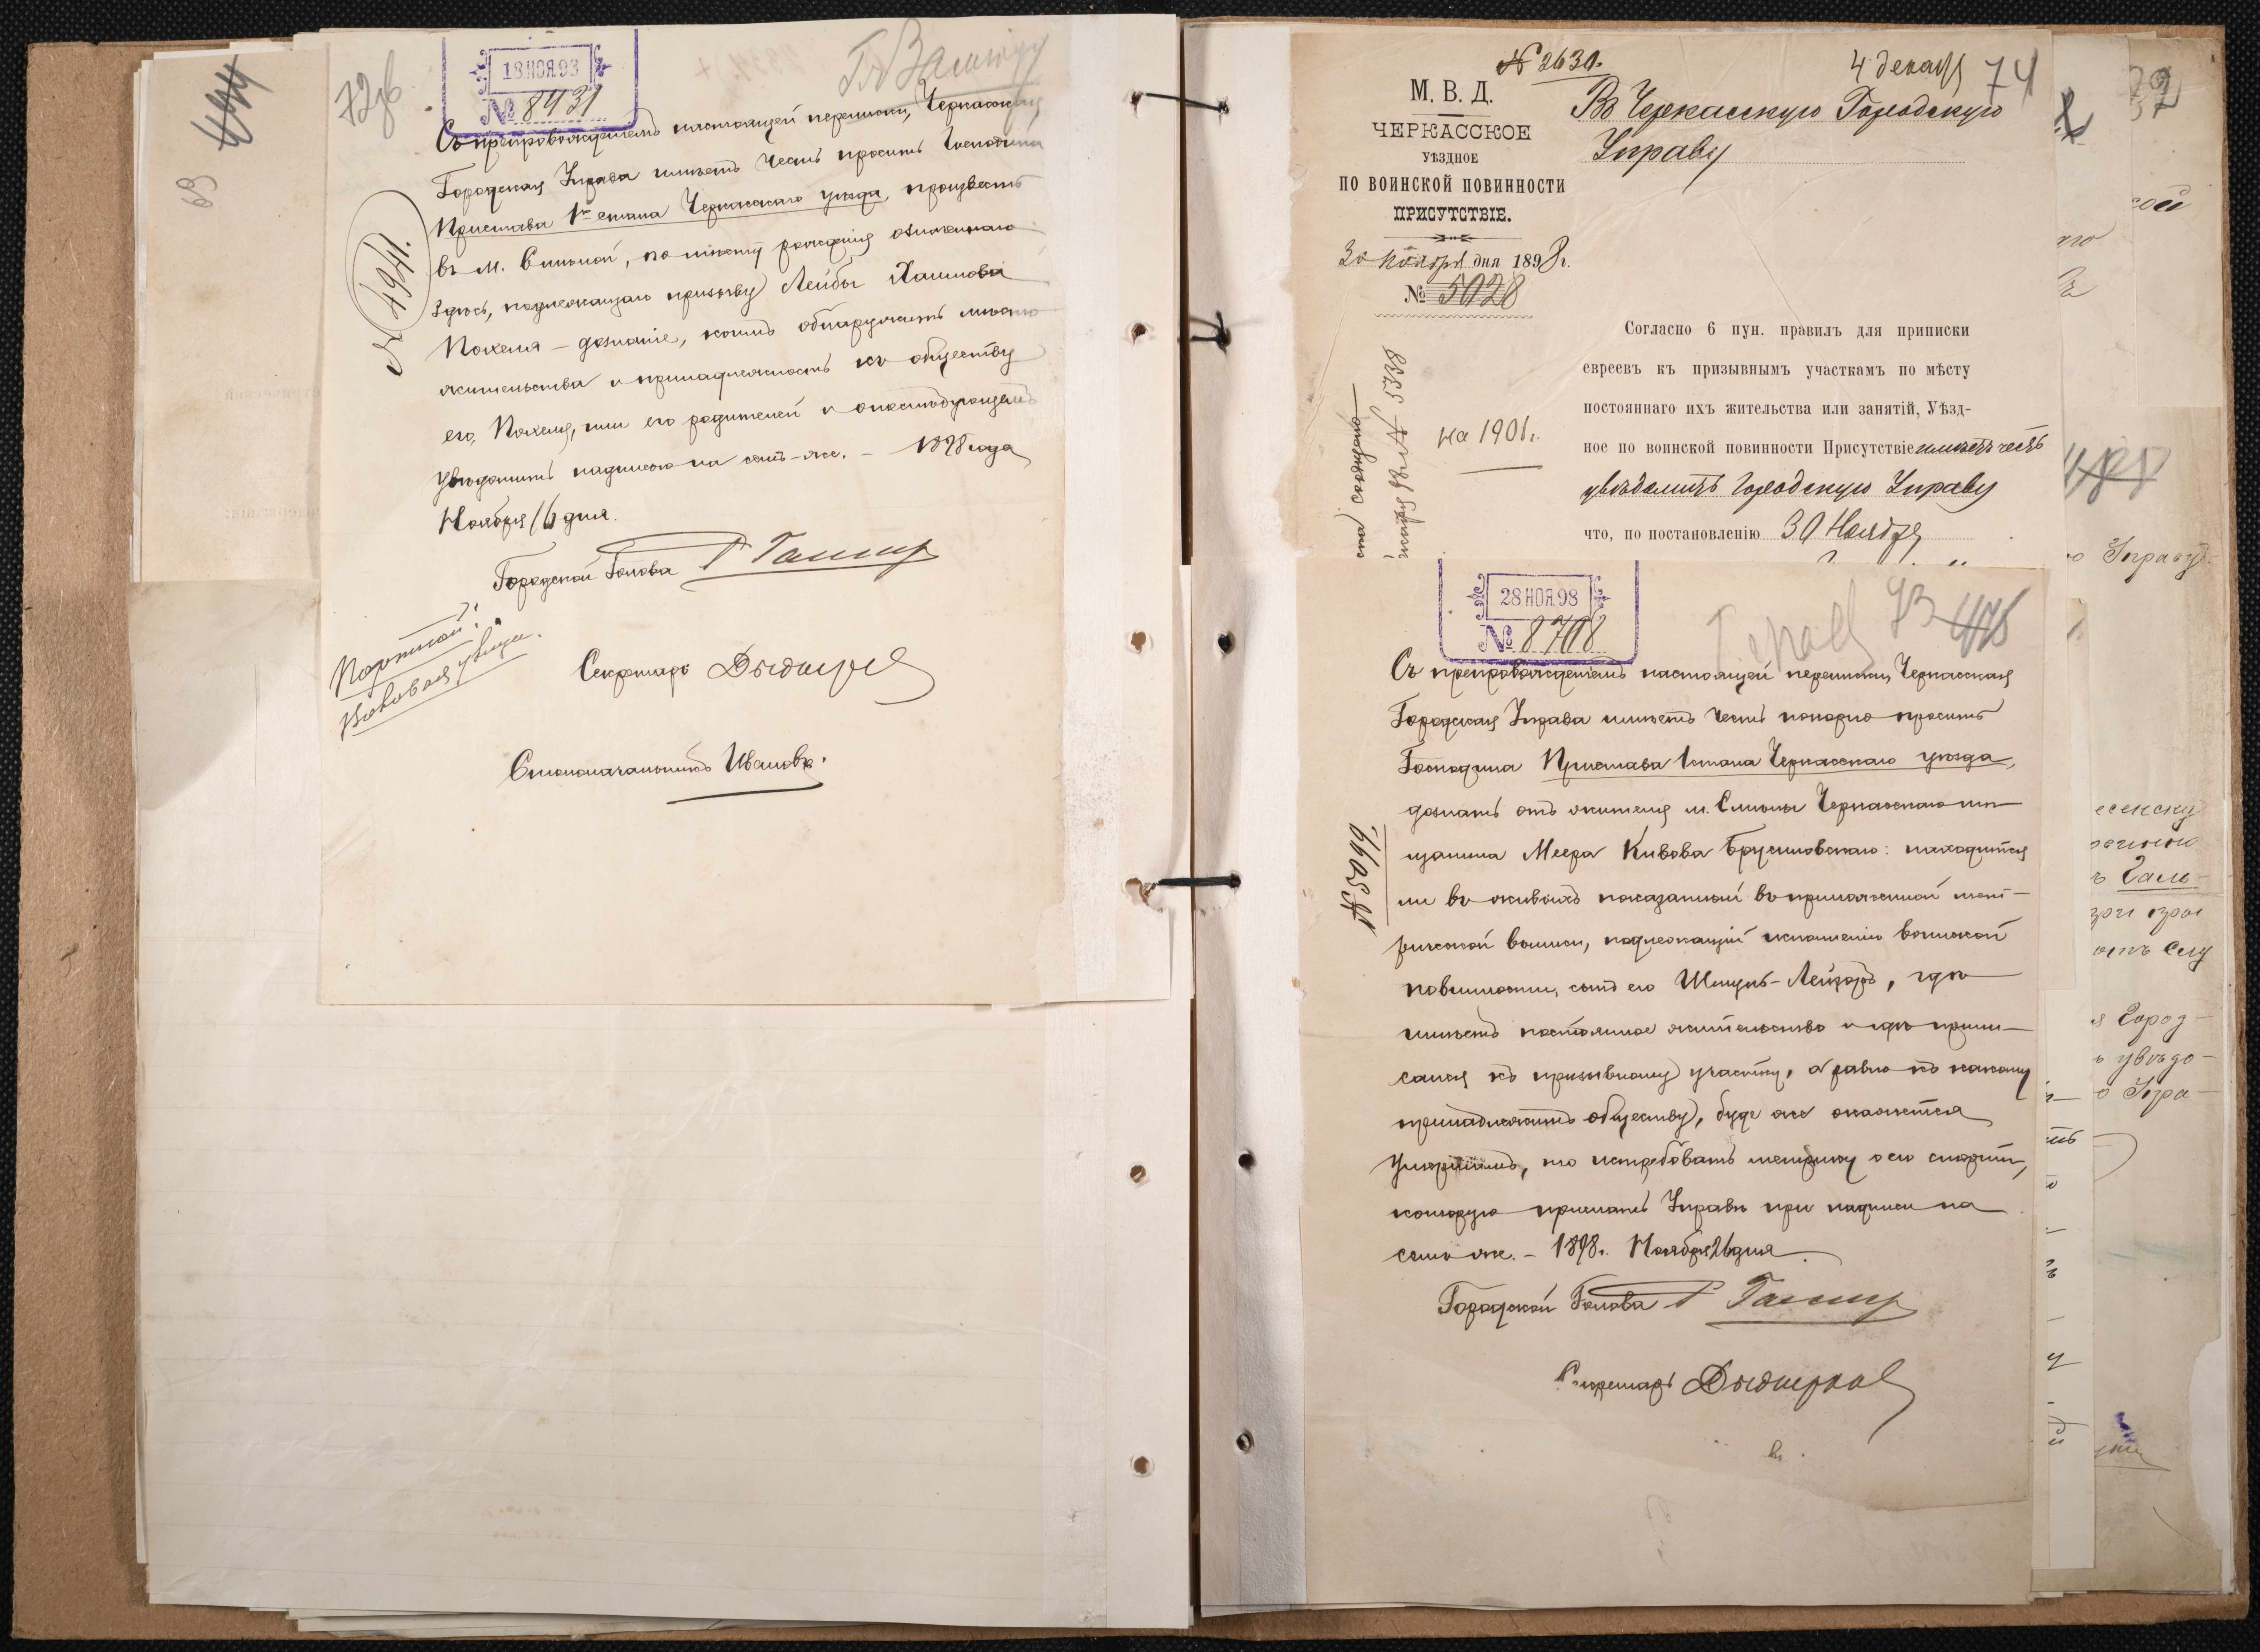 72об
18 НОЯ 93
№ 8431
Съ препровожденіемъ настоящей переписки, Черкасская
Городская Управа имѣетъ честь просить Господина
Пристава 1го стана Черкасскаго уѣзда, произвесть
въ м. Смѣлой, по мѣсту рожденія означеннаго
здѣсь, подлежащаго призыву Лейбы Хаимова
Похеля – дознаніе, коимъ обнаружить мѣсто
жительства и принадлежность къ обществу
его, Похеля, или его родителей и о послѣдующемъ
увѣдомить надписью на семъ-же. – 1898 года
Ноября 16 дня.
№ 4941.
Городской Голова
Секретарь
Столоначальникъ Ивановъ.
69
№ 2630.
4 декабря
74
М. В. Д.
ЧЕРКАССКОЕ
УѢЗДНОЕ
ПО ВОИНСКОЙ ПОВИННОСТИ
ПРИСУТСТВІЕ.
30 Ноября дня 1898 г.
№ 5028
Въ Черкасскую Городскую
Управу
на 1901 г.
№ 5338
Согласно 6 пун. правилъ для приписки
евреевъ къ призывнымъ участкамъ по мѣсту
постояннаго ихъ жительства или занятій, Уѣзд-
ное по воинской повинности Присутствіе имѣетъ честь
увѣдомить Городскую Управу
что, по постановленію 30 Ноября
28 НОЯ 98
№ 8708
73
Съ препровожденіемъ настоящей переписки, Черкасская
Городская Управа имѣетъ честь покорно просить
Господина Пристава 1 стана Черкасскаго уѣзда,
дознать отъ жителя м. Смѣлы Черкасскаго мѣ-
щанина Меера Кивова Брусиловскаго: находится
ли въ живыхъ показанный въ приложенной мет-
рической выписи, подлежащій исполненію воинской
повинности, сынъ его Шмуль-Лейзоръ, гдѣ
имѣетъ постоянное жительство и гдѣ припи-
сался къ призывному участку, а равно къ какому
принадлежитъ обществу, буде же окажется
умершимъ, то истребовать метрику о его смерти,
которую прислать Управѣ при надписи на
семъ же. – 1898 г. Ноября 26 дня
№ 5099
Городской Голова
Секретарь